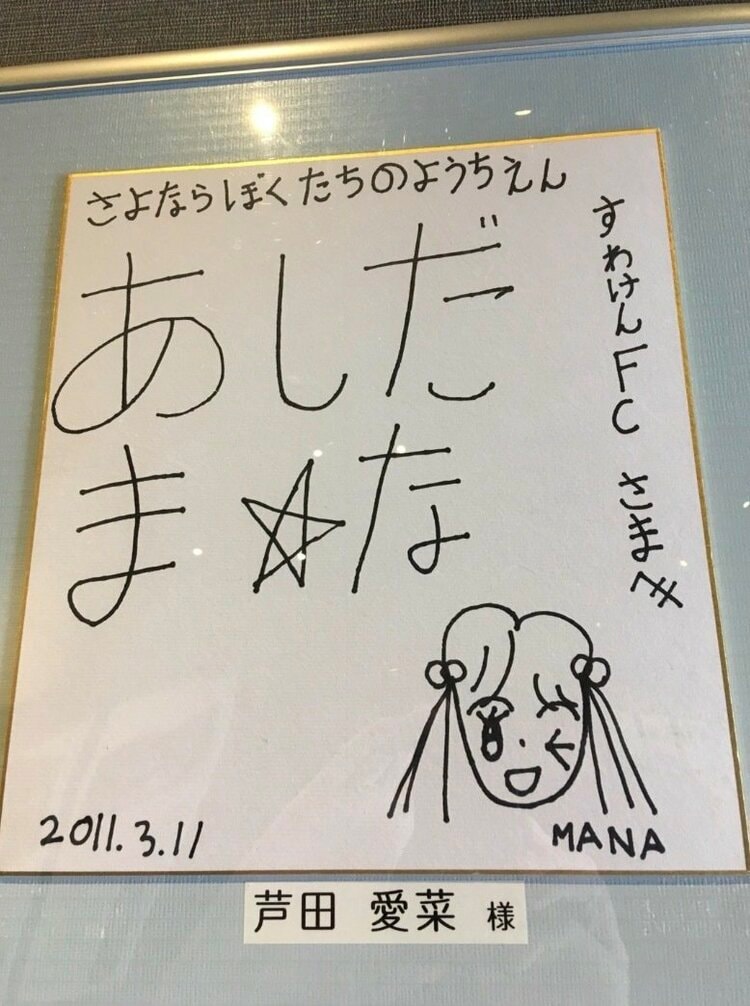 さよならぼくたちのようちえん
すわけんFC さまへ
あしだ
ま☆な
2011.3.11
MANA
芦田 愛菜 様